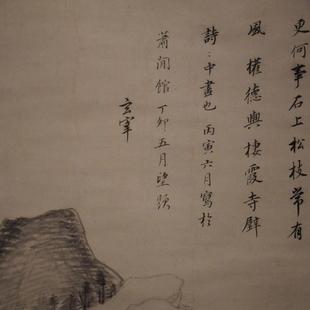 更何事石上松枝常有
風權德輿棲霞寺壁
詩中畫也丙寅六月寫於
蕭閒館丁卯五月望題
玄宰